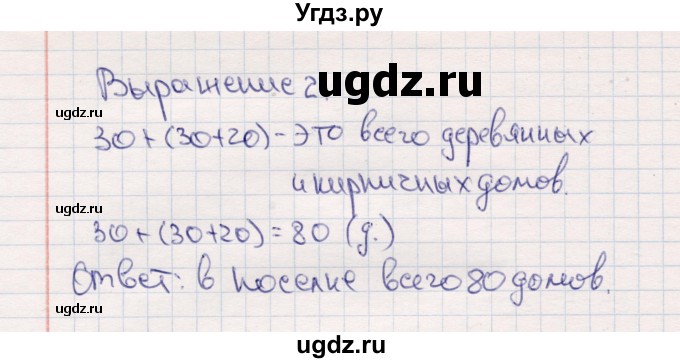 Угдз.ру
Выражение 2.
ugdz.ru
ugdz.ru
30+(30+20) - это всего деревянных
и кирпичных домов.
ugdz.ru
ugdz.ru
30+(30+20) = 80 (д.)
Ответ: в поселке всего 80 домов.
ugdz.ru
ugdz.ru
ugdz.ru